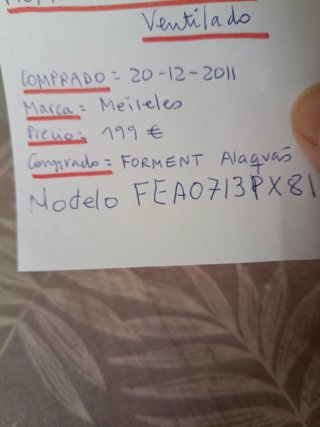 Ventilado
COMPRADO = 20-12-2011
Marca = Meireles
Precio = 199 €
Comprado = FORMENT Alaquás
Modelo FEA0713PX81